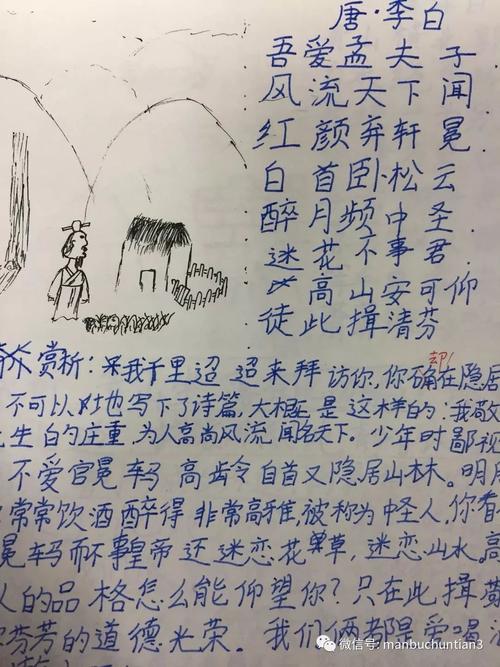 唐·李白
吾爱孟夫子
风流天下闻
红颜弃轩冕
白首卧松云
醉月频中圣
迷花不事君
高山安可仰
徒此揖清芬
赏析：呆我千里迢迢来拜访你，你确在隐居
却！
不可以 也写下了诗篇，大概是这样的：我敬
生白的庄重，为人高尚风流闻名天下。少年时鄙视
不爱官冕车马 高龄白首又隐居山林。明月
常常饮酒醉得非常高雅，被称为中圣人，你看
冕车马而不事皇帝还迷恋花草，迷恋山水。高
人的品格怎么能仰望你？只在此揖
芬芳的道德光荣。我们俩都是爱喝
微信号: manbuchuntian3